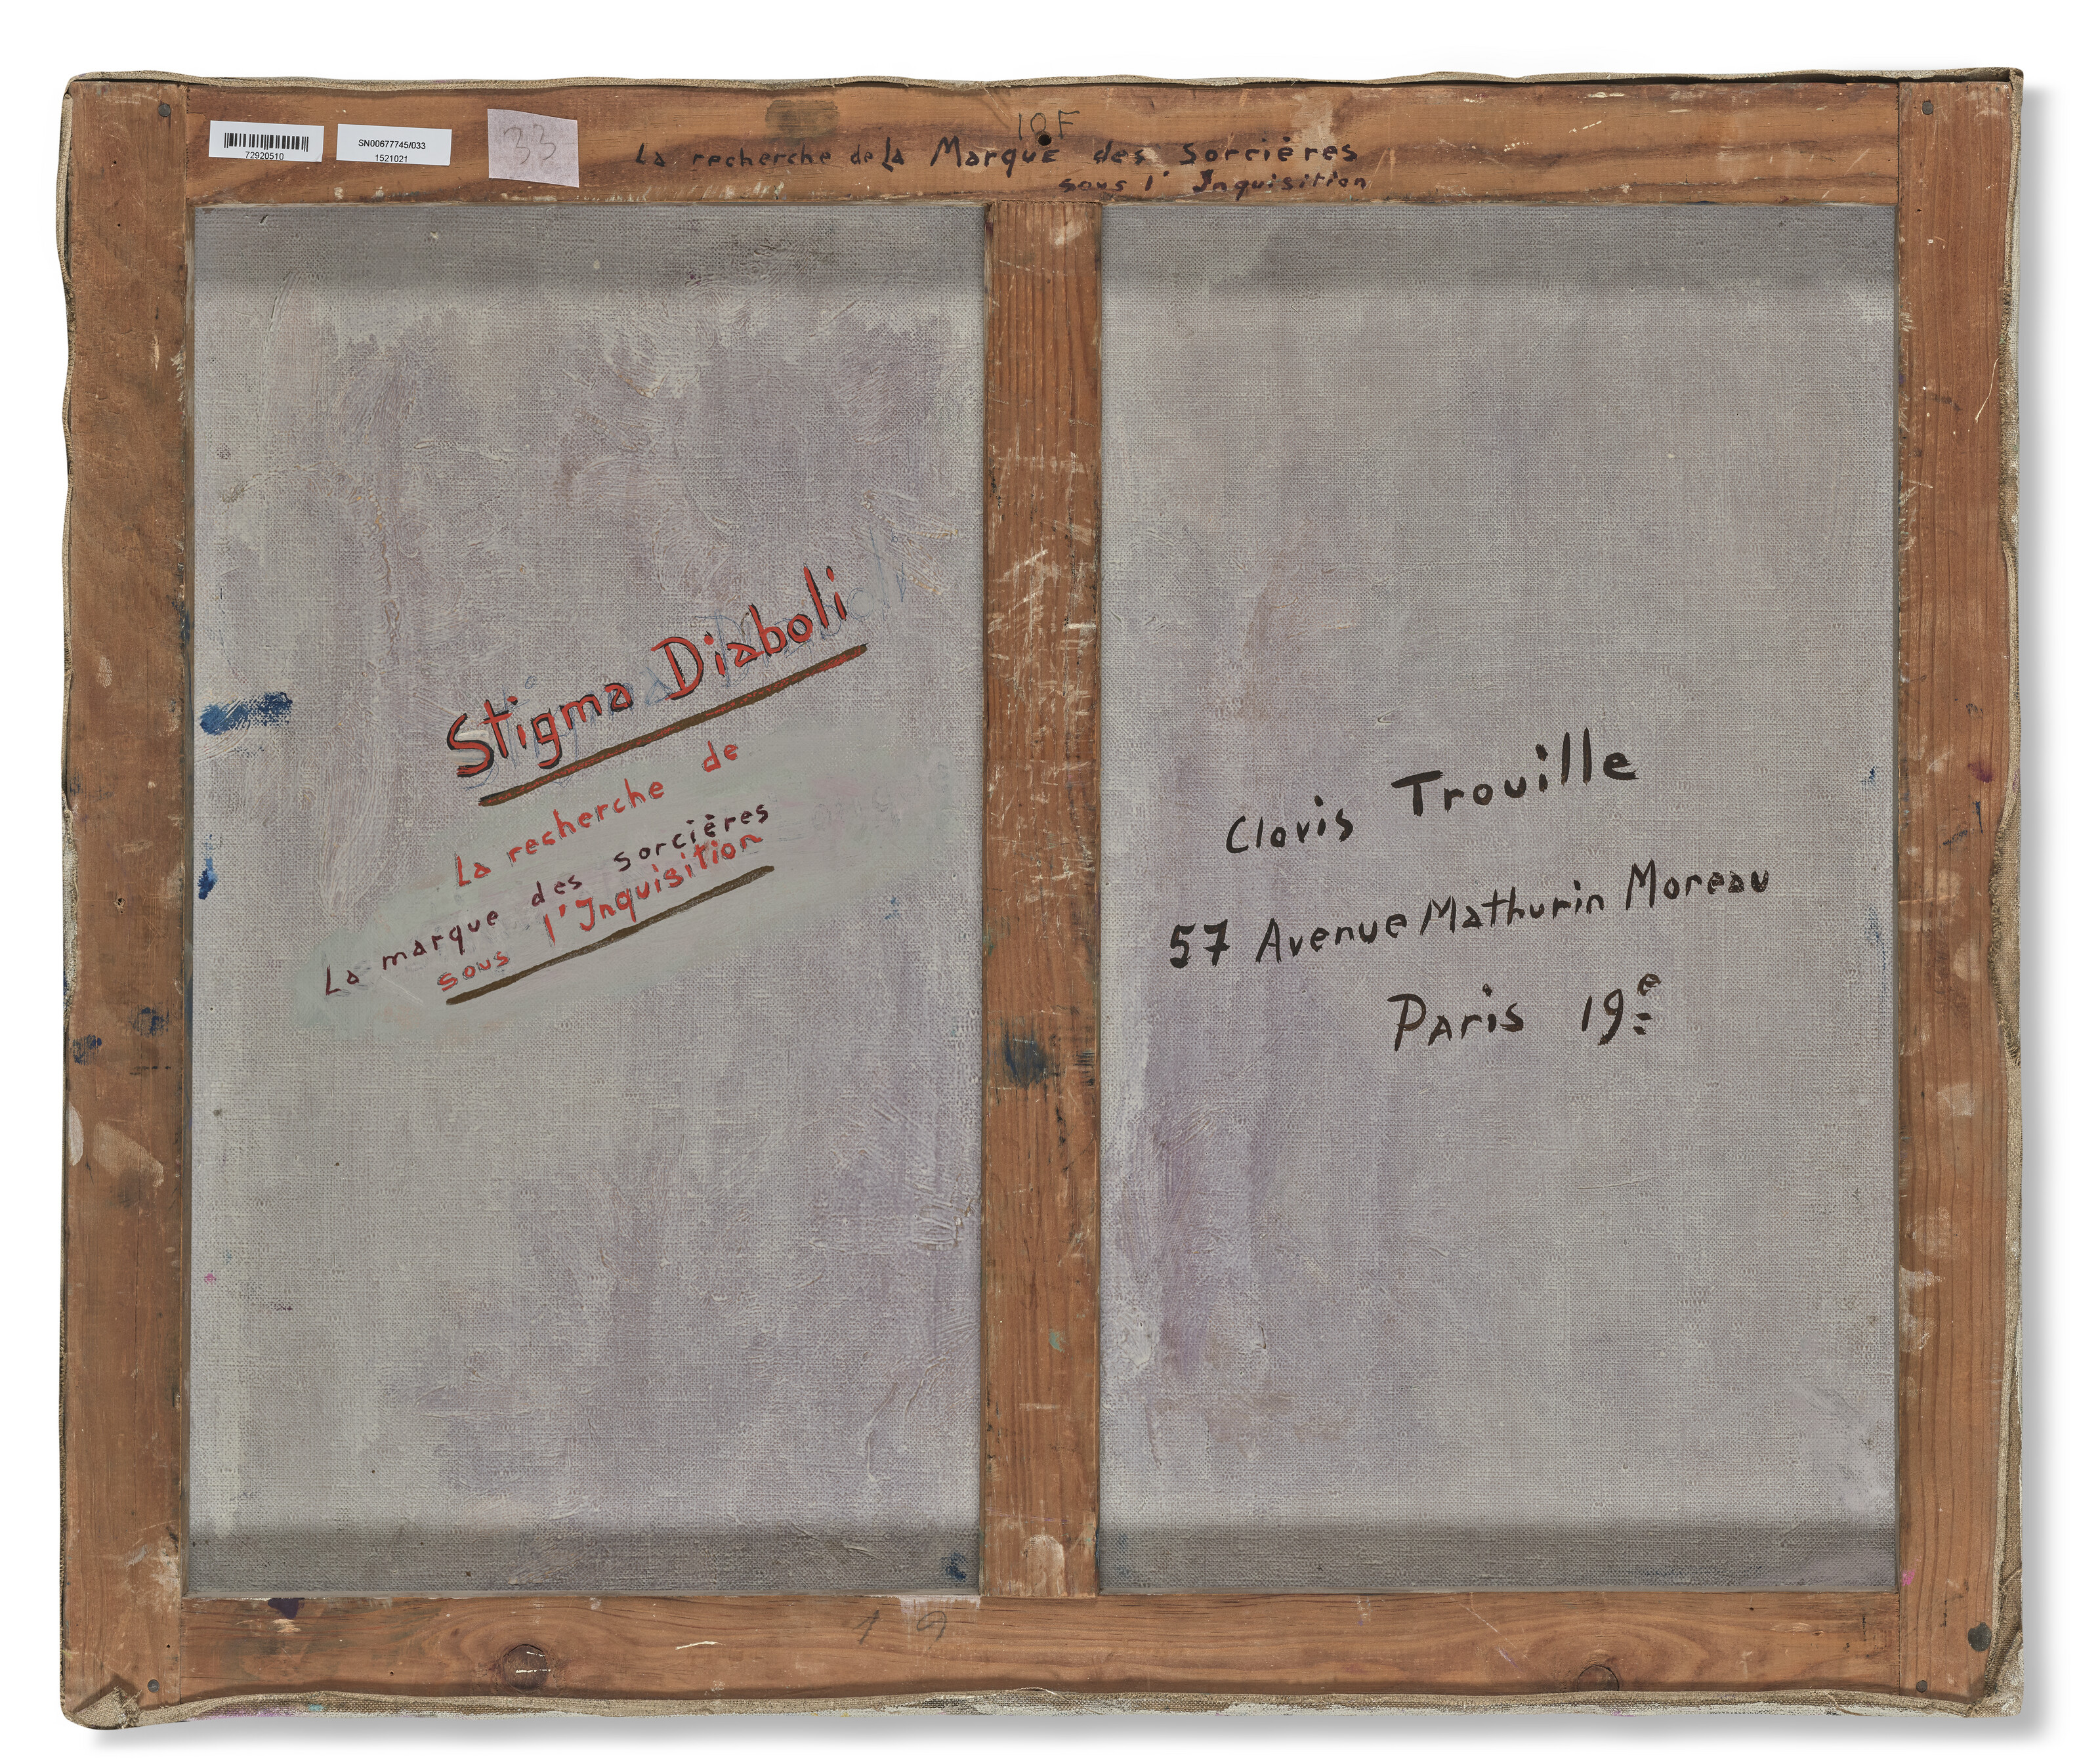 72920510
SN00677745/033
1521021
33
10F
La recherche de La Marque des Sorcières
sous l'Inquisition
Stigma Diaboli
La recherche de
La marque des sorcières
sous l'Inquisition
Clovis Trouille
57 Avenue Mathurin Moreau
Paris 19e
19